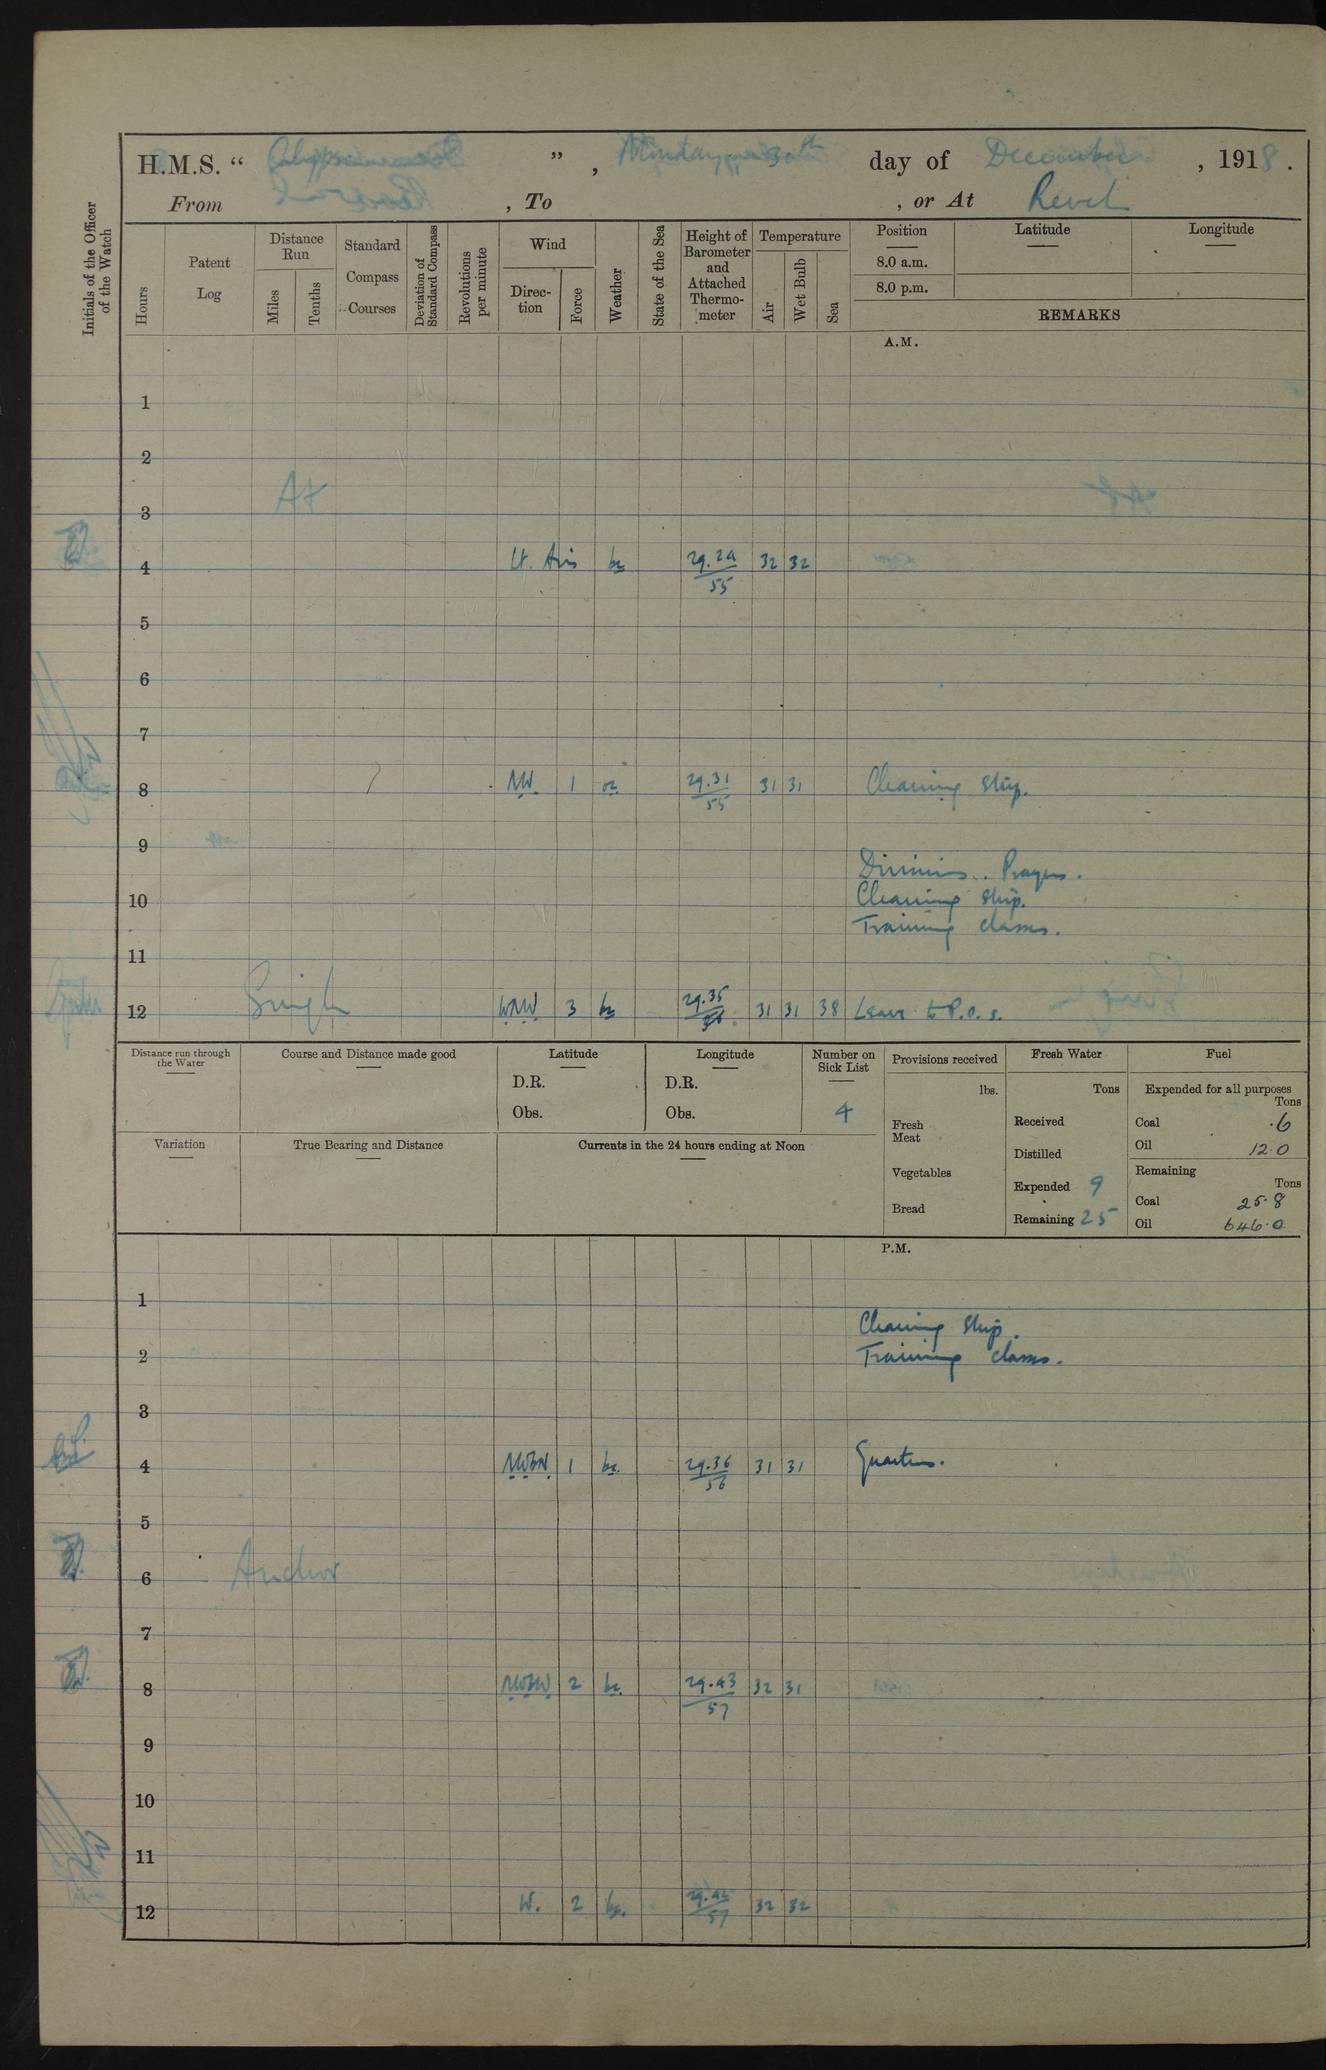 H.M.S. " Calypso " , Monday 30th day of December , 1918 .
From , To , or At Revel
Initials of the Officer of the Watch
Hours
Patent Log
Distance Run
Miles
Tenths
Standard Compass Courses
Deviation of Standard Compass
Revolutions per minute
Wind
Direc-tion
Force
Weather
State of the Sea
Height of Barometer and Attached Thermo-meter
Temperature
Air
Wet Bulb
Sea
Position
8.0 a.m.
8.0 p.m.
Latitude
Longitude
REMARKS
A.M.
1
2
At
3
4 Lt. Airs 29.24 32 32
55
5
6
7
8 NW. 1 29.31 31 31 Cleaning ship.
55
9
Divisions. Prayers.
10 Cleaning ship.
Training classes.
11
12 Single WNW 3 29.35 31 31 38 Leave to P.O.s.
56
Distance run through the Water
Course and Distance made good
Latitude
D.R.
Obs.
Longitude
D.R.
Obs.
Number on Sick List
4
Provisions received
lbs.
Fresh Meat
Vegetables
Bread
Fresh Water
Tons
Received
Distilled
Expended 9
Remaining 25
Fuel
Expended for all purposes
Tons
Coal .6
Oil 12.0
Remaining
Tons
Coal 25.8
Oil 646.0
Variation
True Bearing and Distance
Currents in the 24 hours ending at Noon
P.M.
1
Cleaning ship.
2 Training classes.
3
4 NWbW 1 bc. 29.36 31 31 Quarters.
56
5
6 Anchor
7
8 NWbW 2 bc. 29.43 32 31
57
9
10
11
12 W. 2 bc. 29.42 32 32
57